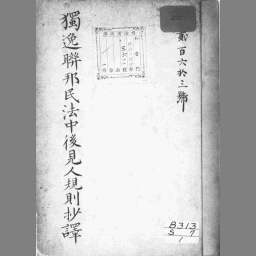 貳百六拾三號
獨逸聯邦民法中後見人規則抄譯
B313
S7
1